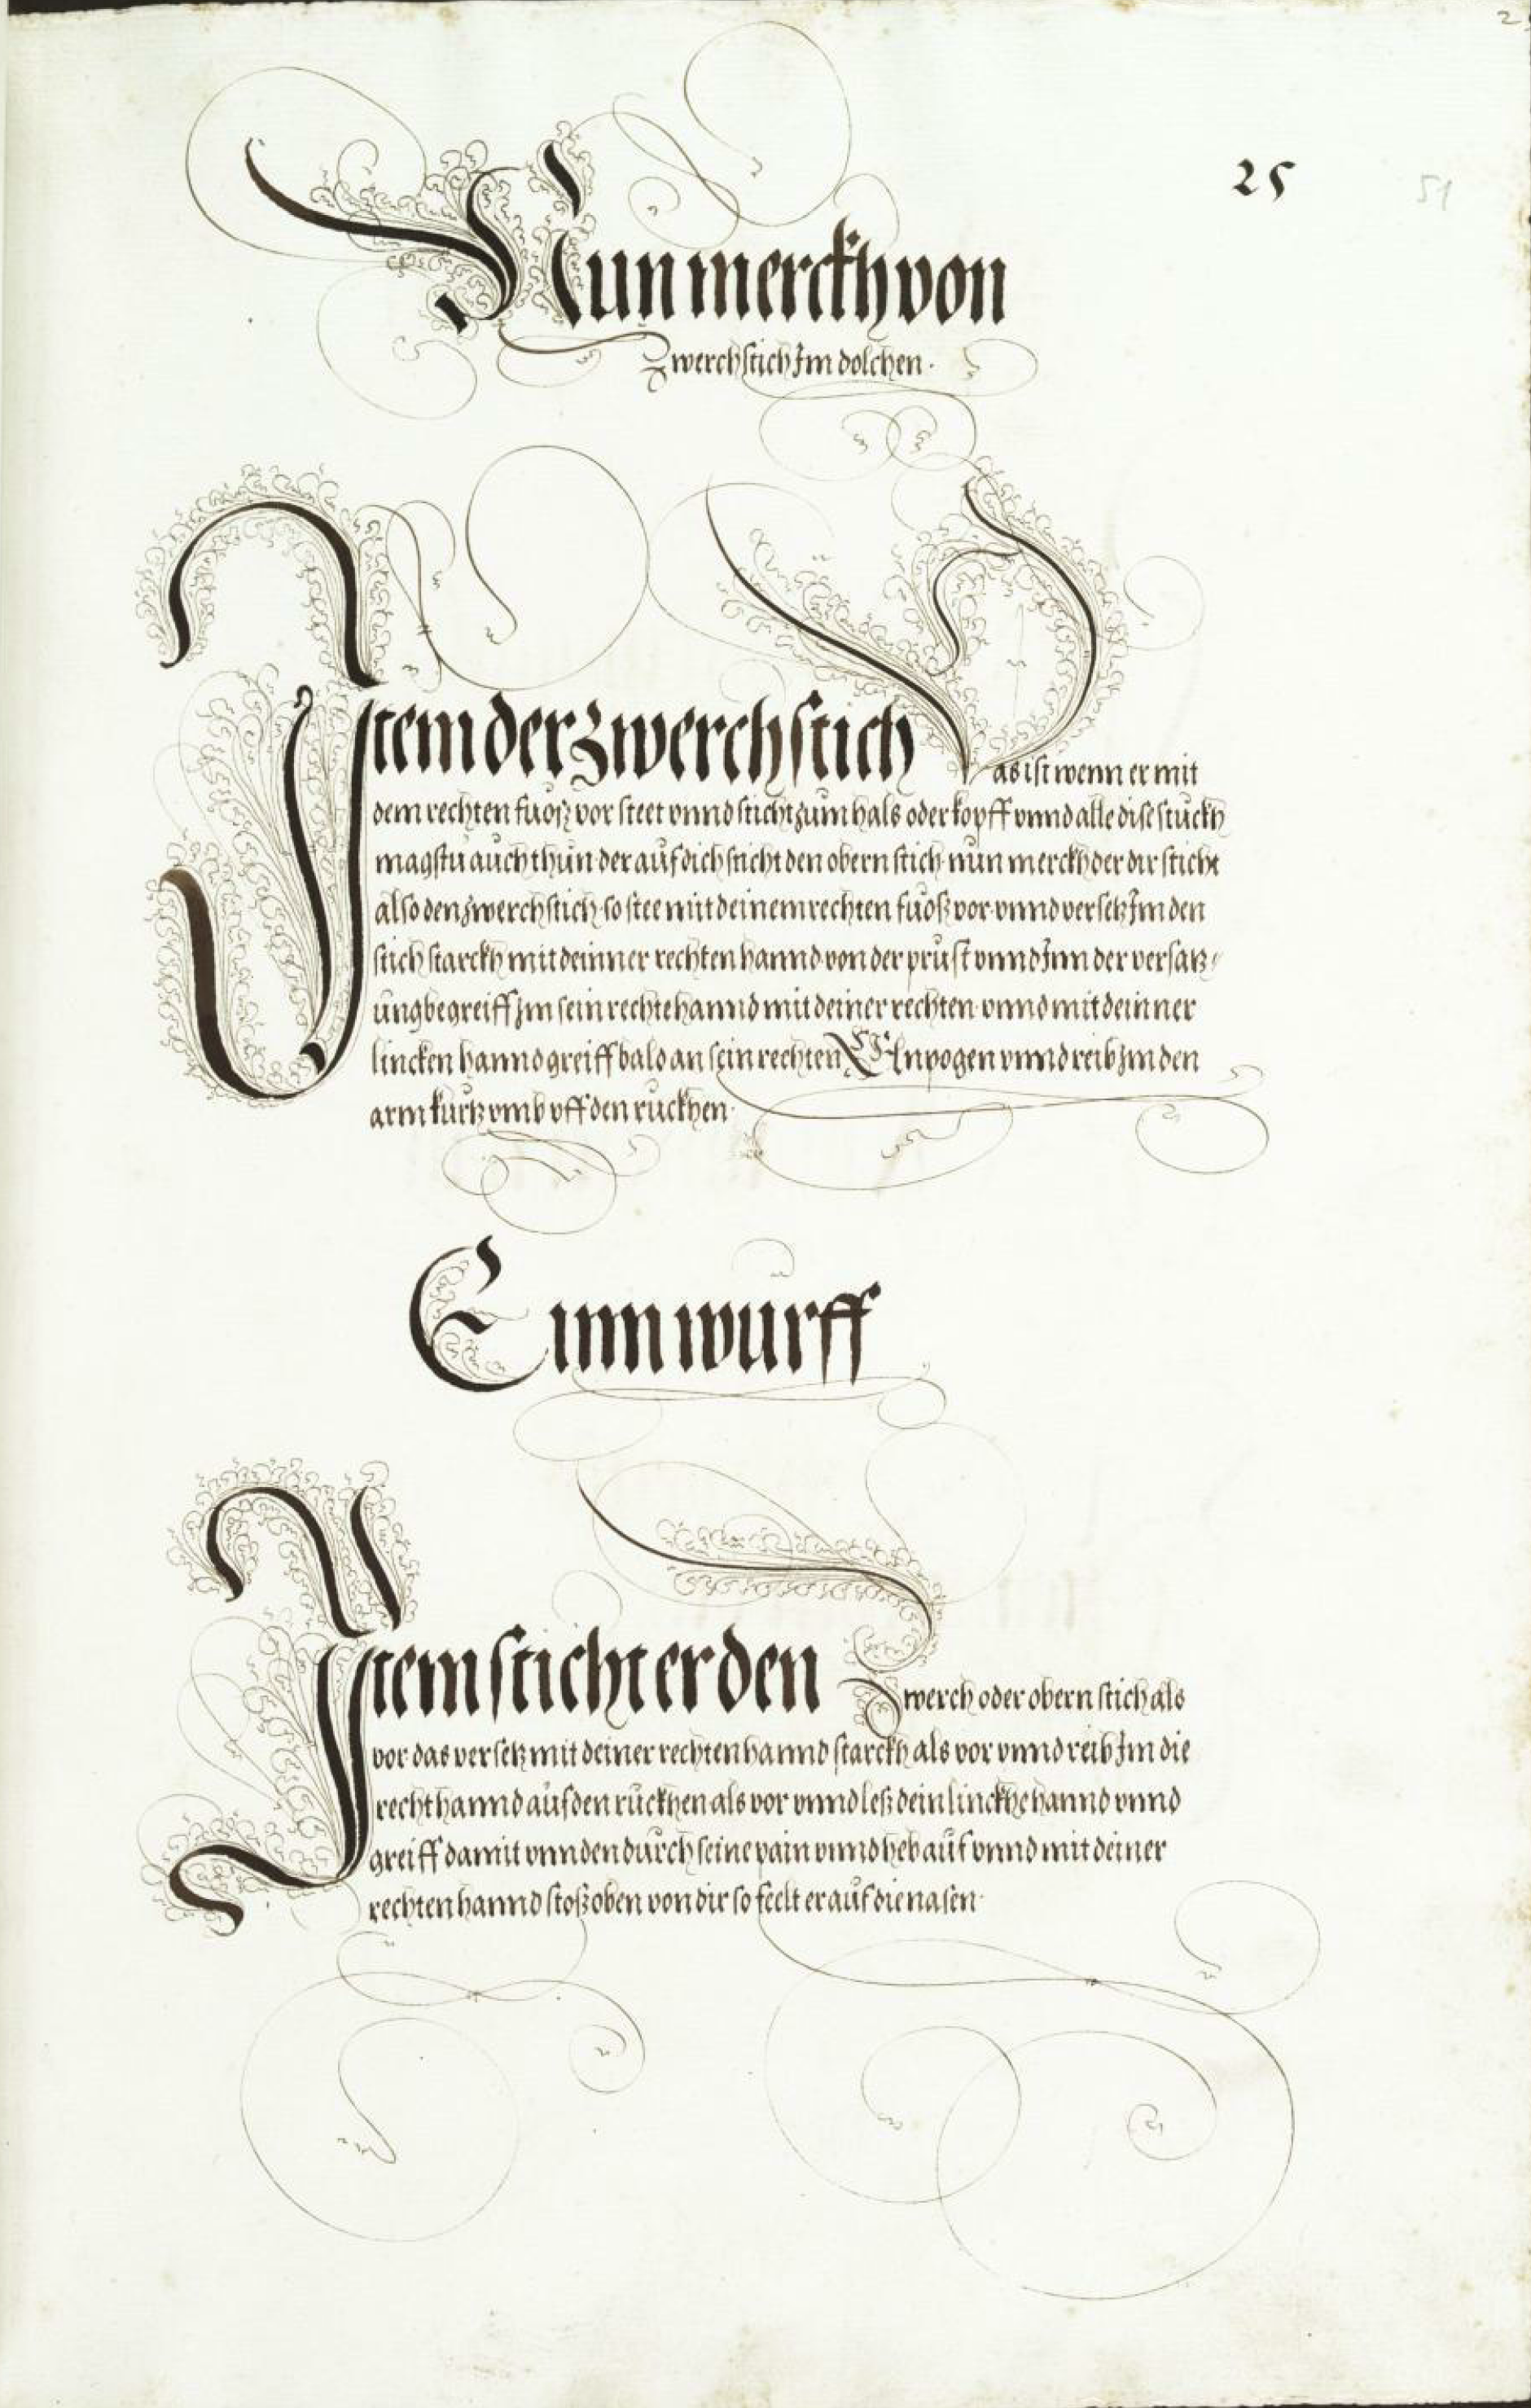 25
51
Nun merckh von
Zwerchstich Im dolchen.
Item der zwerchstich
Das ist wenn er mit
dem rechten fuosz vor steet vnnd sticht zum hals oder kopff vnnd alle dise stuckh
magstu auch thun der auf dich sticht den obern stich nun merckh der dir sticht
also den zwerchstich so stee mit deinem rechten fuosz vor vnnd versetz Im den
stich starckh mit deinner rechten hannd von der prust vnnd Inn der versatz⸗
ung begreiff Im sein rechte hannd mit deiner rechten vnnd mit deinner
lincken hannd greiff bald an sein rechten Elnpogen vnnd reib Im den
arm kurtz vmb vff den ruckhen
Einn wurff
Item sticht er den
Zwerch oder obern stich als
vor das versetz mit deiner rechten hannd starckh als vor vnnd reib Im die
recht hannd auf den ruckhen als vor vnnd lesz dein linckhe hannd vnnd
greiff damit vnnden durch seine pain vnnd heb auf vnnd mit deiner
rechten hannd stosz oben von dir so felt er auf die nasen